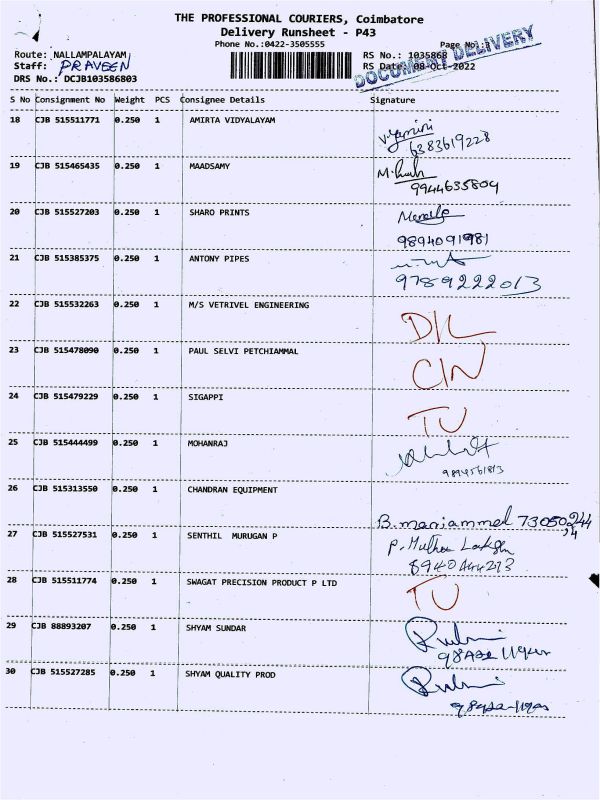 THE PROFESSIONAL COURIERS, Coimbatore
Delivery Runsheet - P43
Phone No.:0422-3505555
Page No.:3
Route: NALLAMPALAYAM
RS No.: 1035868
Staff: PRAVEEN
RS Date: 08-Oct-2022
DOCUMENT DELIVERY
DRS No.: DCJB103586803
S No Consignment No Weight PCS Consignee Details Signature
18 CJB 515511771 0.250 1 AMIRTA VIDYALAYAM V.Yamini
6383619228
19 CJB 515465435 0.250 1 MAADSAMY
9944635804
20 CJB 515527203 0.250 1 SHARO PRINTS
9894091981
21 CJB 515385375 0.250 1 ANTONY PIPES
9789222013
22 CJB 515532263 0.250 1 M/S VETRIVEL ENGINEERING D/L
23 CJB 515478090 0.250 1 PAUL SELVI PETCHIAMMAL C/N
24 CJB 515479229 0.250 1 SIGAPPI TU
25 CJB 515444499 0.250 1 MOHANRAJ
26 CJB 515313550 0.250 1 CHANDRAN EQUIPMENT
B.mariammal 73050
27 CJB 515527531 0.250 1 SENTHIL MURUGAN P
28 CJB 515511774 0.250 1 SWAGAT PRECISION PRODUCT P LTD TU
29 CJB 88893207 0.250 1 SHYAM SUNDAR
30 CJB 515527285 0.250 1 SHYAM QUALITY PROD